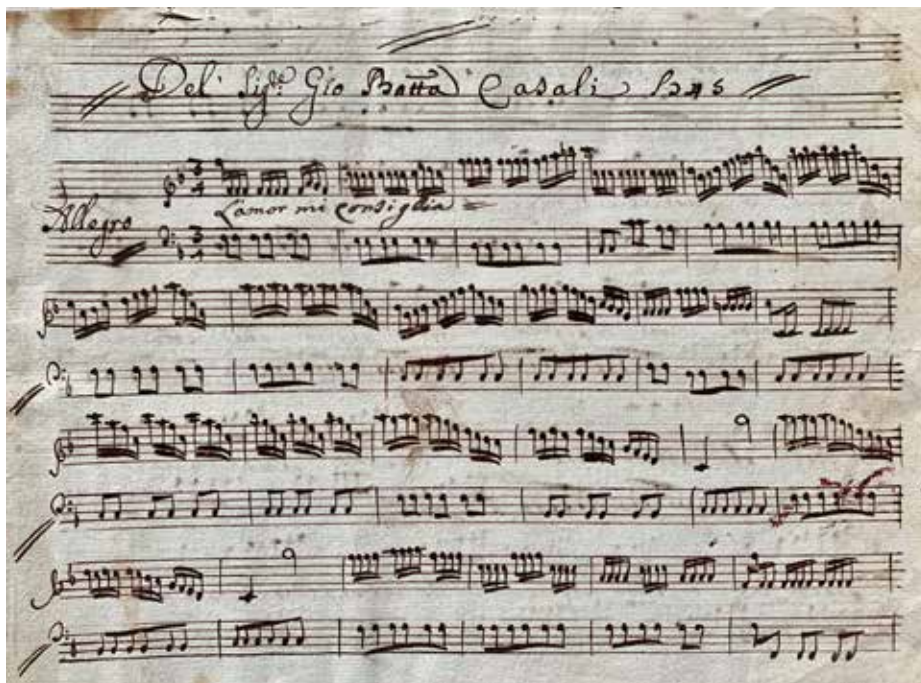 Del Sig.re Gio Batta Casali
Allegro
3
4
L'amor mi consiglia
3
4